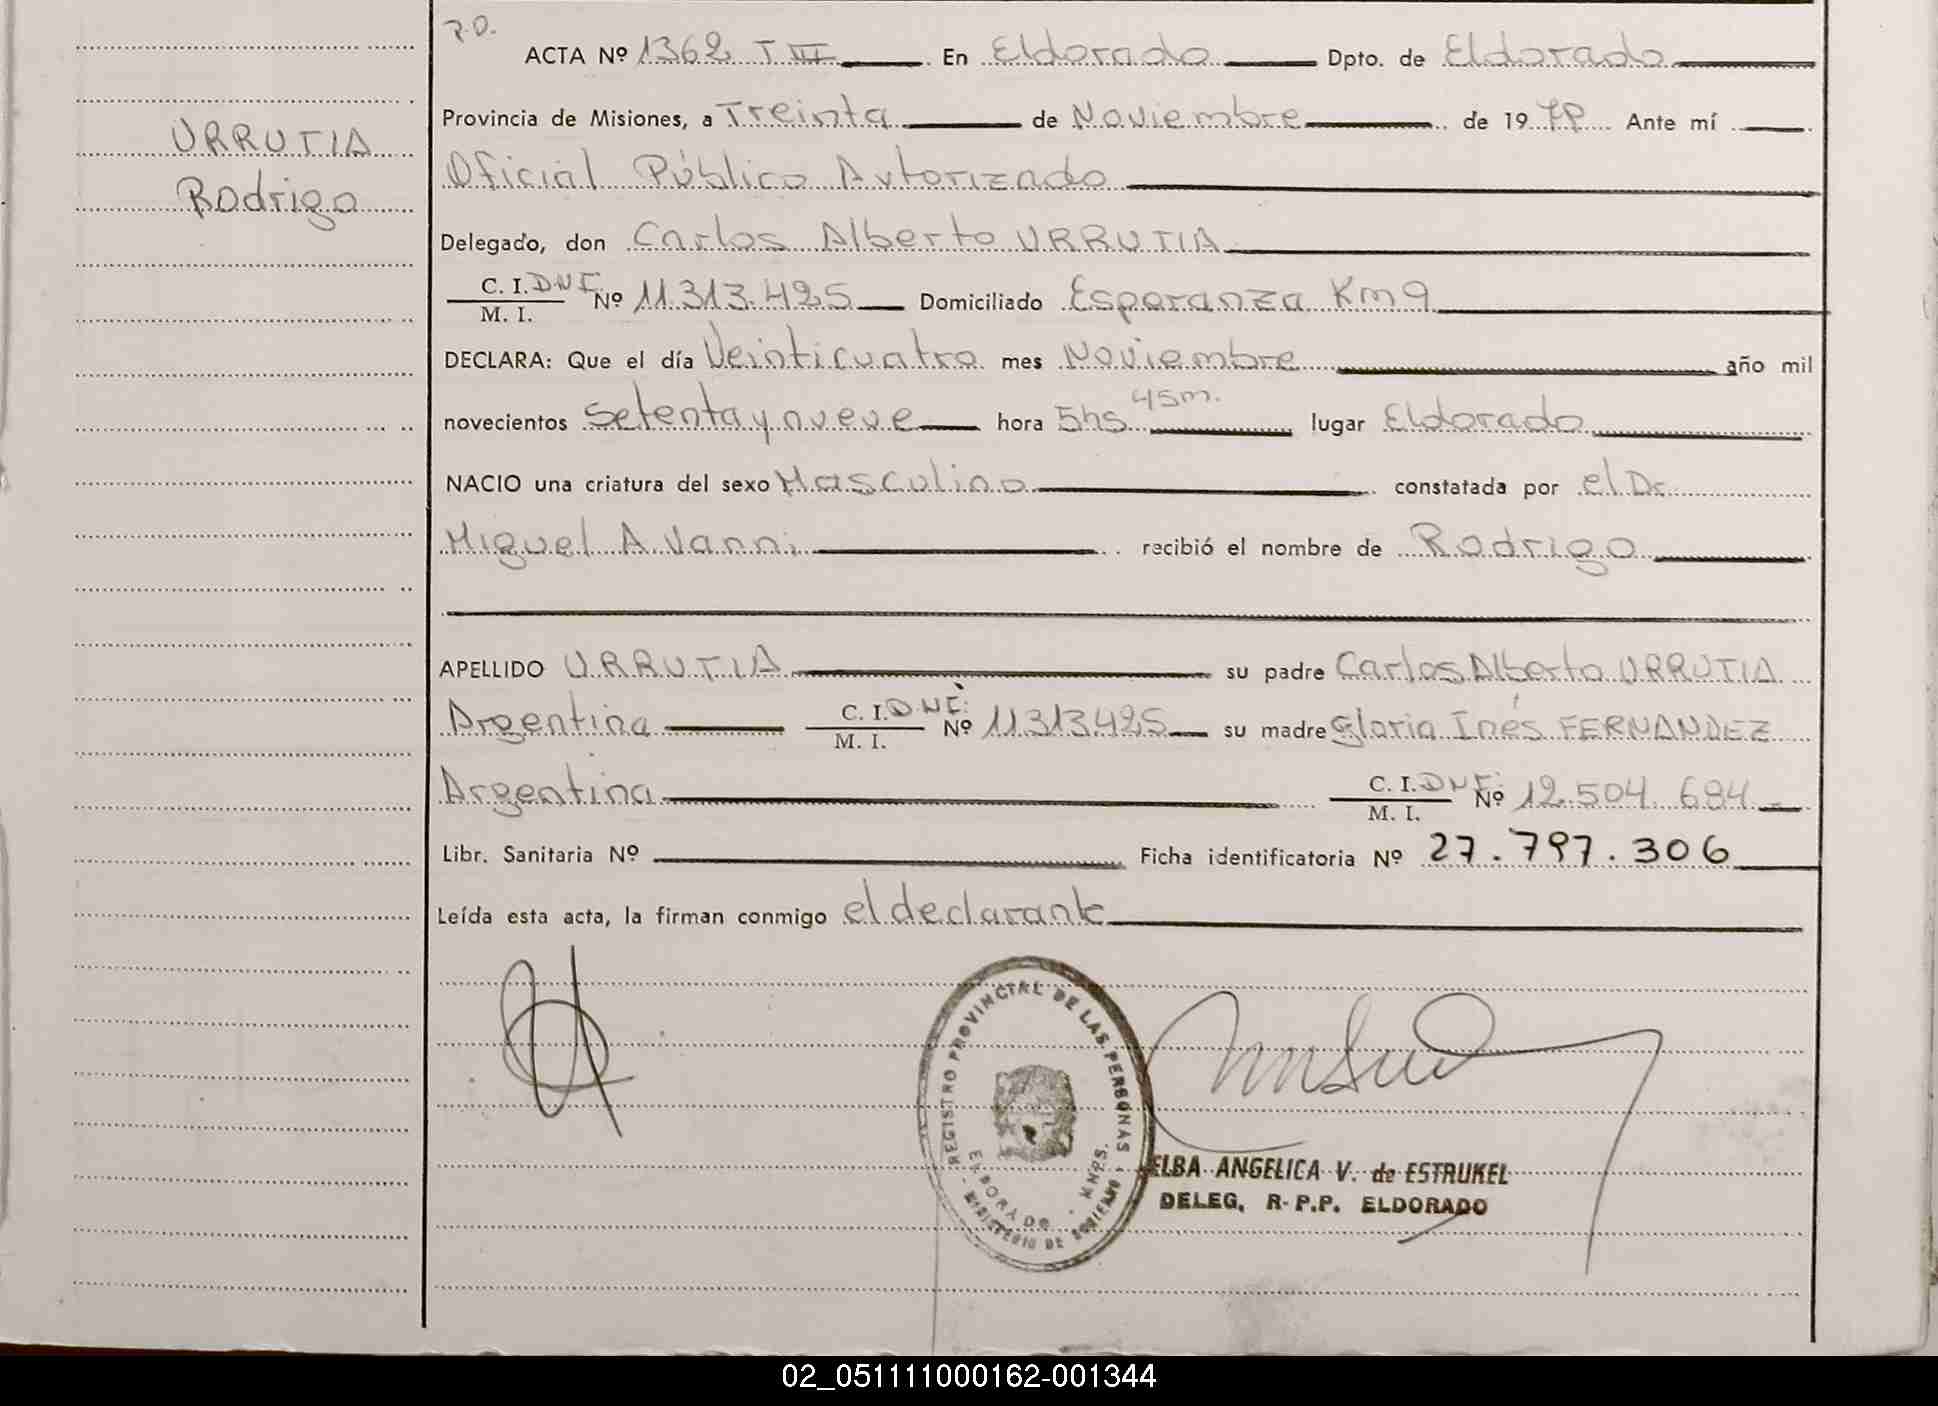 P.D.
ACTA Nº 1362 T III En Eldorado Dpto. de Eldorado
Provincia de Misiones, a Treinta de Noviembre de 1979 Ante mí
URRUTIA
Rodrigo
Oficial Público Autorizado
Delegado, don Carlos Alberto URRUTIA
C. I. DNI Nº 11.313.425 Domiciliado Esperanza Km 9
M. I.
DECLARA: Que el día Veinticuatro mes Noviembre año mil
novecientos setenta y nueve hora 5hs 45m. lugar Eldorado
NACIO una criatura del sexo Masculino constatada por el Dr.
Miguel A. Vanni recibió el nombre de Rodrigo
APELLIDO URRUTIA su padre Carlos Alberto URRUTIA
Argentina C. I. DNI: Nº 11313.425 su madre Gloria Inés FERNANDEZ
M. I.
Argentina C. I. DNI: Nº 12.504.684
M. I.
Libr. Sanitaria Nº Ficha identificatoria Nº 27.797.306
Leída esta acta, la firman conmigo el declarante
REGISTRO PROVINCIAL DE LAS PERSONAS
ELDORADO - MNES.
MINISTERIO DE GOBIERNO
ELBA ANGELICA V. de ESTRUKEL
DELEG. R. P.P. ELDORADO
02_051111000162-001344